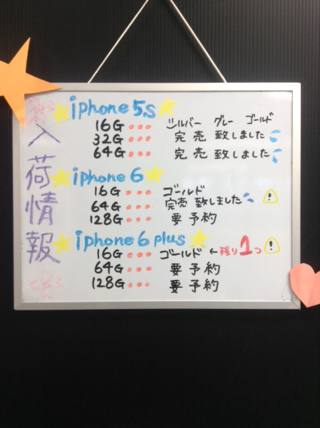 入荷情報
iphone 5s
16G ••• シルバー グレー ゴールド
32G ••• 完売致しました
64G ••• 完売致しました
iphone 6
16G ••• ゴールド
64G ••• 完売致しました
128G ••• 要予約
iphone 6 plus
16G ••• ゴールド ←残り1つ
64G ••• 要予約
128G ••• 要予約